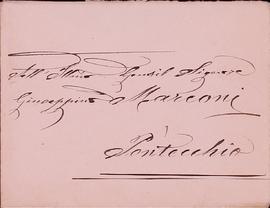 Gentil Signore
Giuseppino Marconi
Pontecchio